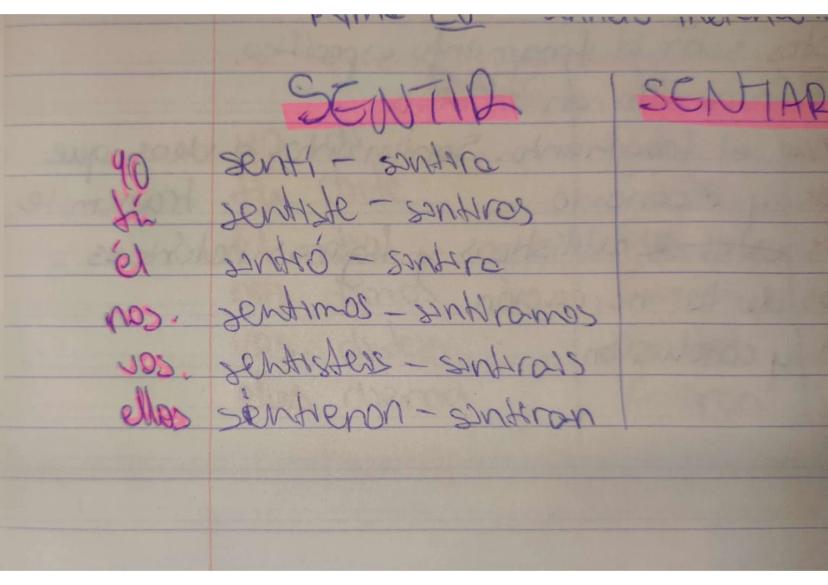 SENTIR SENTAR
yo sentí - sintiera
tú sentiste - sintieras
él sintió - sintiera
nos. sentimos - sintiéramos
vos. sentisteis - sintierais
ellos sintieron - sintieran